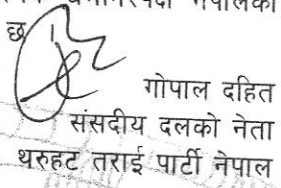 नेपालको
छ ।
गोपाल दहित
संसदीय दलको नेता
थरुहट तराई पार्टी नेपाल